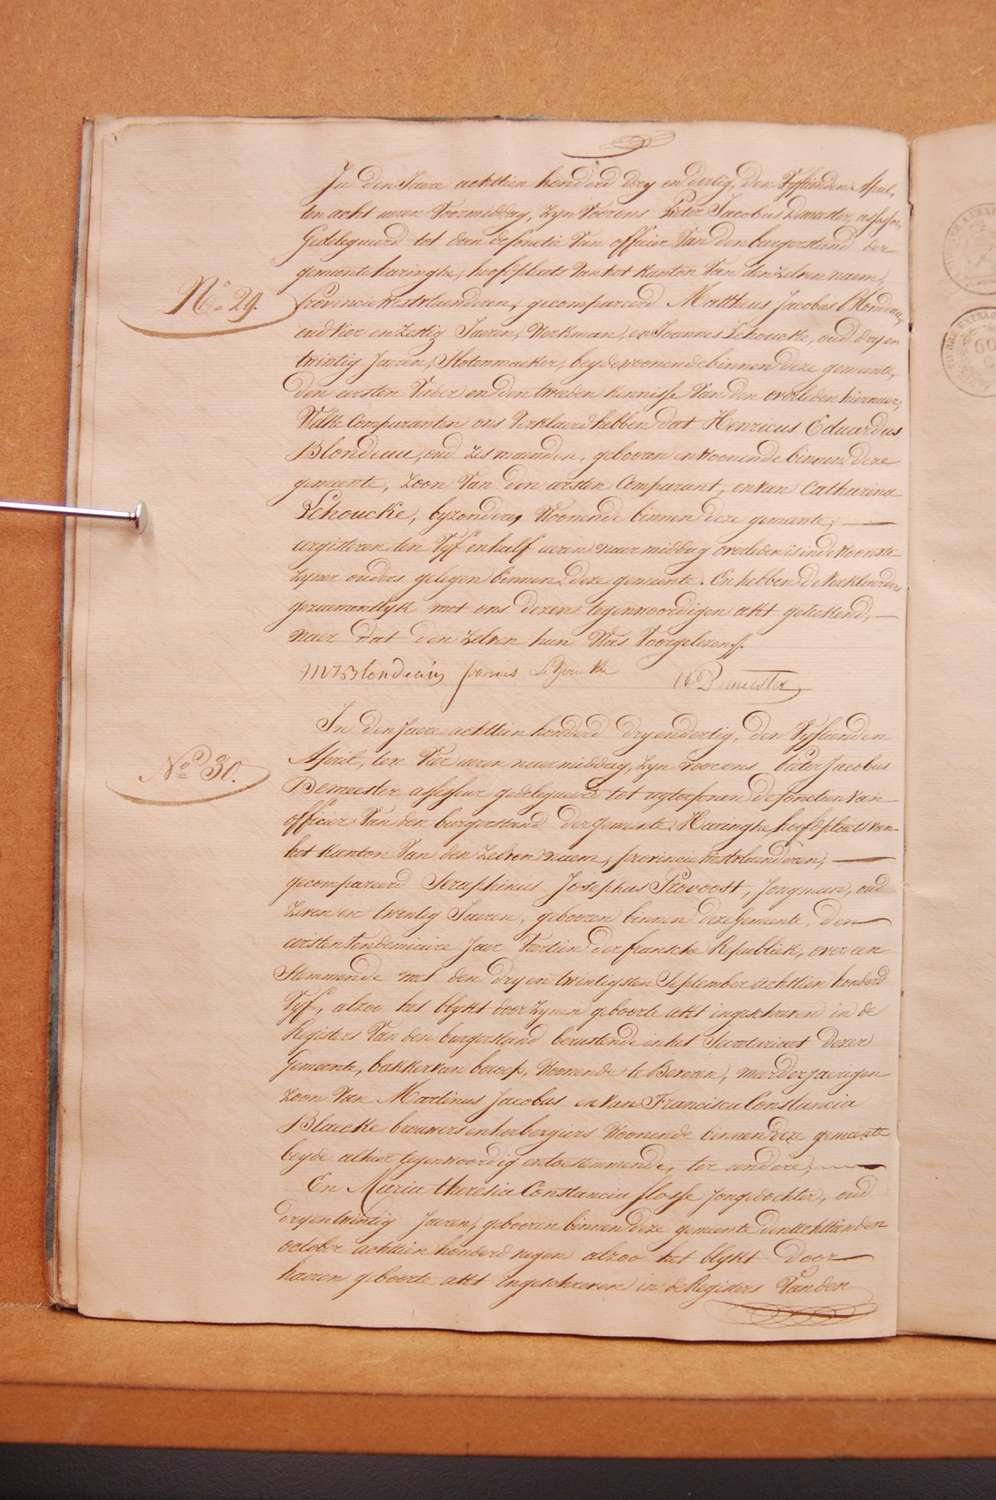 In den Jaere achttien honderd dry en dertig, den Vyftienden April,
ten acht uren Voormiddag, zyn Voor ons Pieter Jacobus Demeester, assesseur
Gedelegueerd tot doen de functie Van officier Van den burgerstand der
gemeente haringhe, hoofdplaets Van het kanton Van den zelven naem,
No. 29.
provincie westvlaenderen, gecompareerd Mattheus Jacobus Blondeau,
oud vier en zestig Jaeren, Werkman, en Joannes Schoucke, oud dry en
twintig Jaeren, Slotenmaeker, beyde woonende binnen deze gemeente,
den eersten Vader en den tweeden kennisse Van den overleden hiernaer,
Welke Comparanten ons Verklaerd hebben dat Henricus Eduardus
Blondeau, oud zes maenden, geboren en woonende binnen deze
gemeente, zoon Van den eersten Comparant, en van Catharina
Schoucke, byzondere, Woonende binnen deze gemeente,
eergisteren ten Vyf en half uren naermiddag overleden is in de Woonste
zyner ouders gelegen binnen deze gemeente. En hebben de Verklaerders
gezamentlyk met ons dezen tegenwoordigen akt geteekend,
naer dat den zelven hun Was Voorgelezen.
M J Blondeau Joannes Schoucke Demeester
In den Jaere achttien honderd dry en dertig, den Vyftienden
No. 30.
April, ten Vier uren naermiddag, zyn voor ons Pieter Jacobus
Demeester assesseur gedelegueerd tot uytoefenen de functien van
officier Van den burgerstand der gemeente Haringhe hoofdplaets van
het kanton Van den zelven naem, provincie westvlaenderen,
gecompareerd Seraphinus Josephus Provoost, Jongman, oud
zeven en twintig Jaeren, geboren binnen deze gemeente, den
eersten Vendemiaire Jaer Veertien der fransche Republiek, over een
Stemmende met den dry en twintigsten September achttien honderd
Vyf, alzoo het blykt door zynen geboorte akt ingeschreven in de
Registers Van den burgerstand berustende in het Secretariaet dezer
Gemeente, bakker van beroep, Woonende te Beveren, meerderjaerigen
zoon Van Martinus Jacobus en van Francisca Constancia
Blaeke brouwers en herbergiers Woonende binnen deze gemeente
beyde alhier tegenwoordig en toestemmende, ter eendere,
En Maria theresia Constancia flosse Jongedochter, oud
dry en twintig Jaeren, geboren binnen deze gemeente den achttienden
october achttien honderd negen alzoo het blykt door
haeren geboorte akt ingeschreven in de Registers Van den